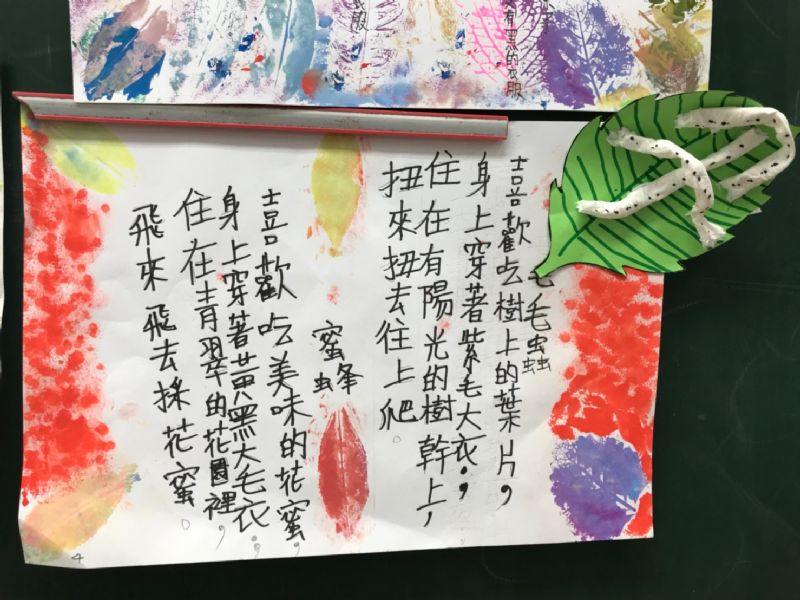 有黑的衣服
毛毛蟲
喜歡吃樹上的葉片，
身上穿著紫毛大衣，
住在有陽光的樹幹上，
扭來扭去往上爬。
蜜蜂
喜歡吃美味的花蜜，
身上穿著黃黑大毛衣，
住在青翠的花園裡，
飛來飛去採花蜜。
4